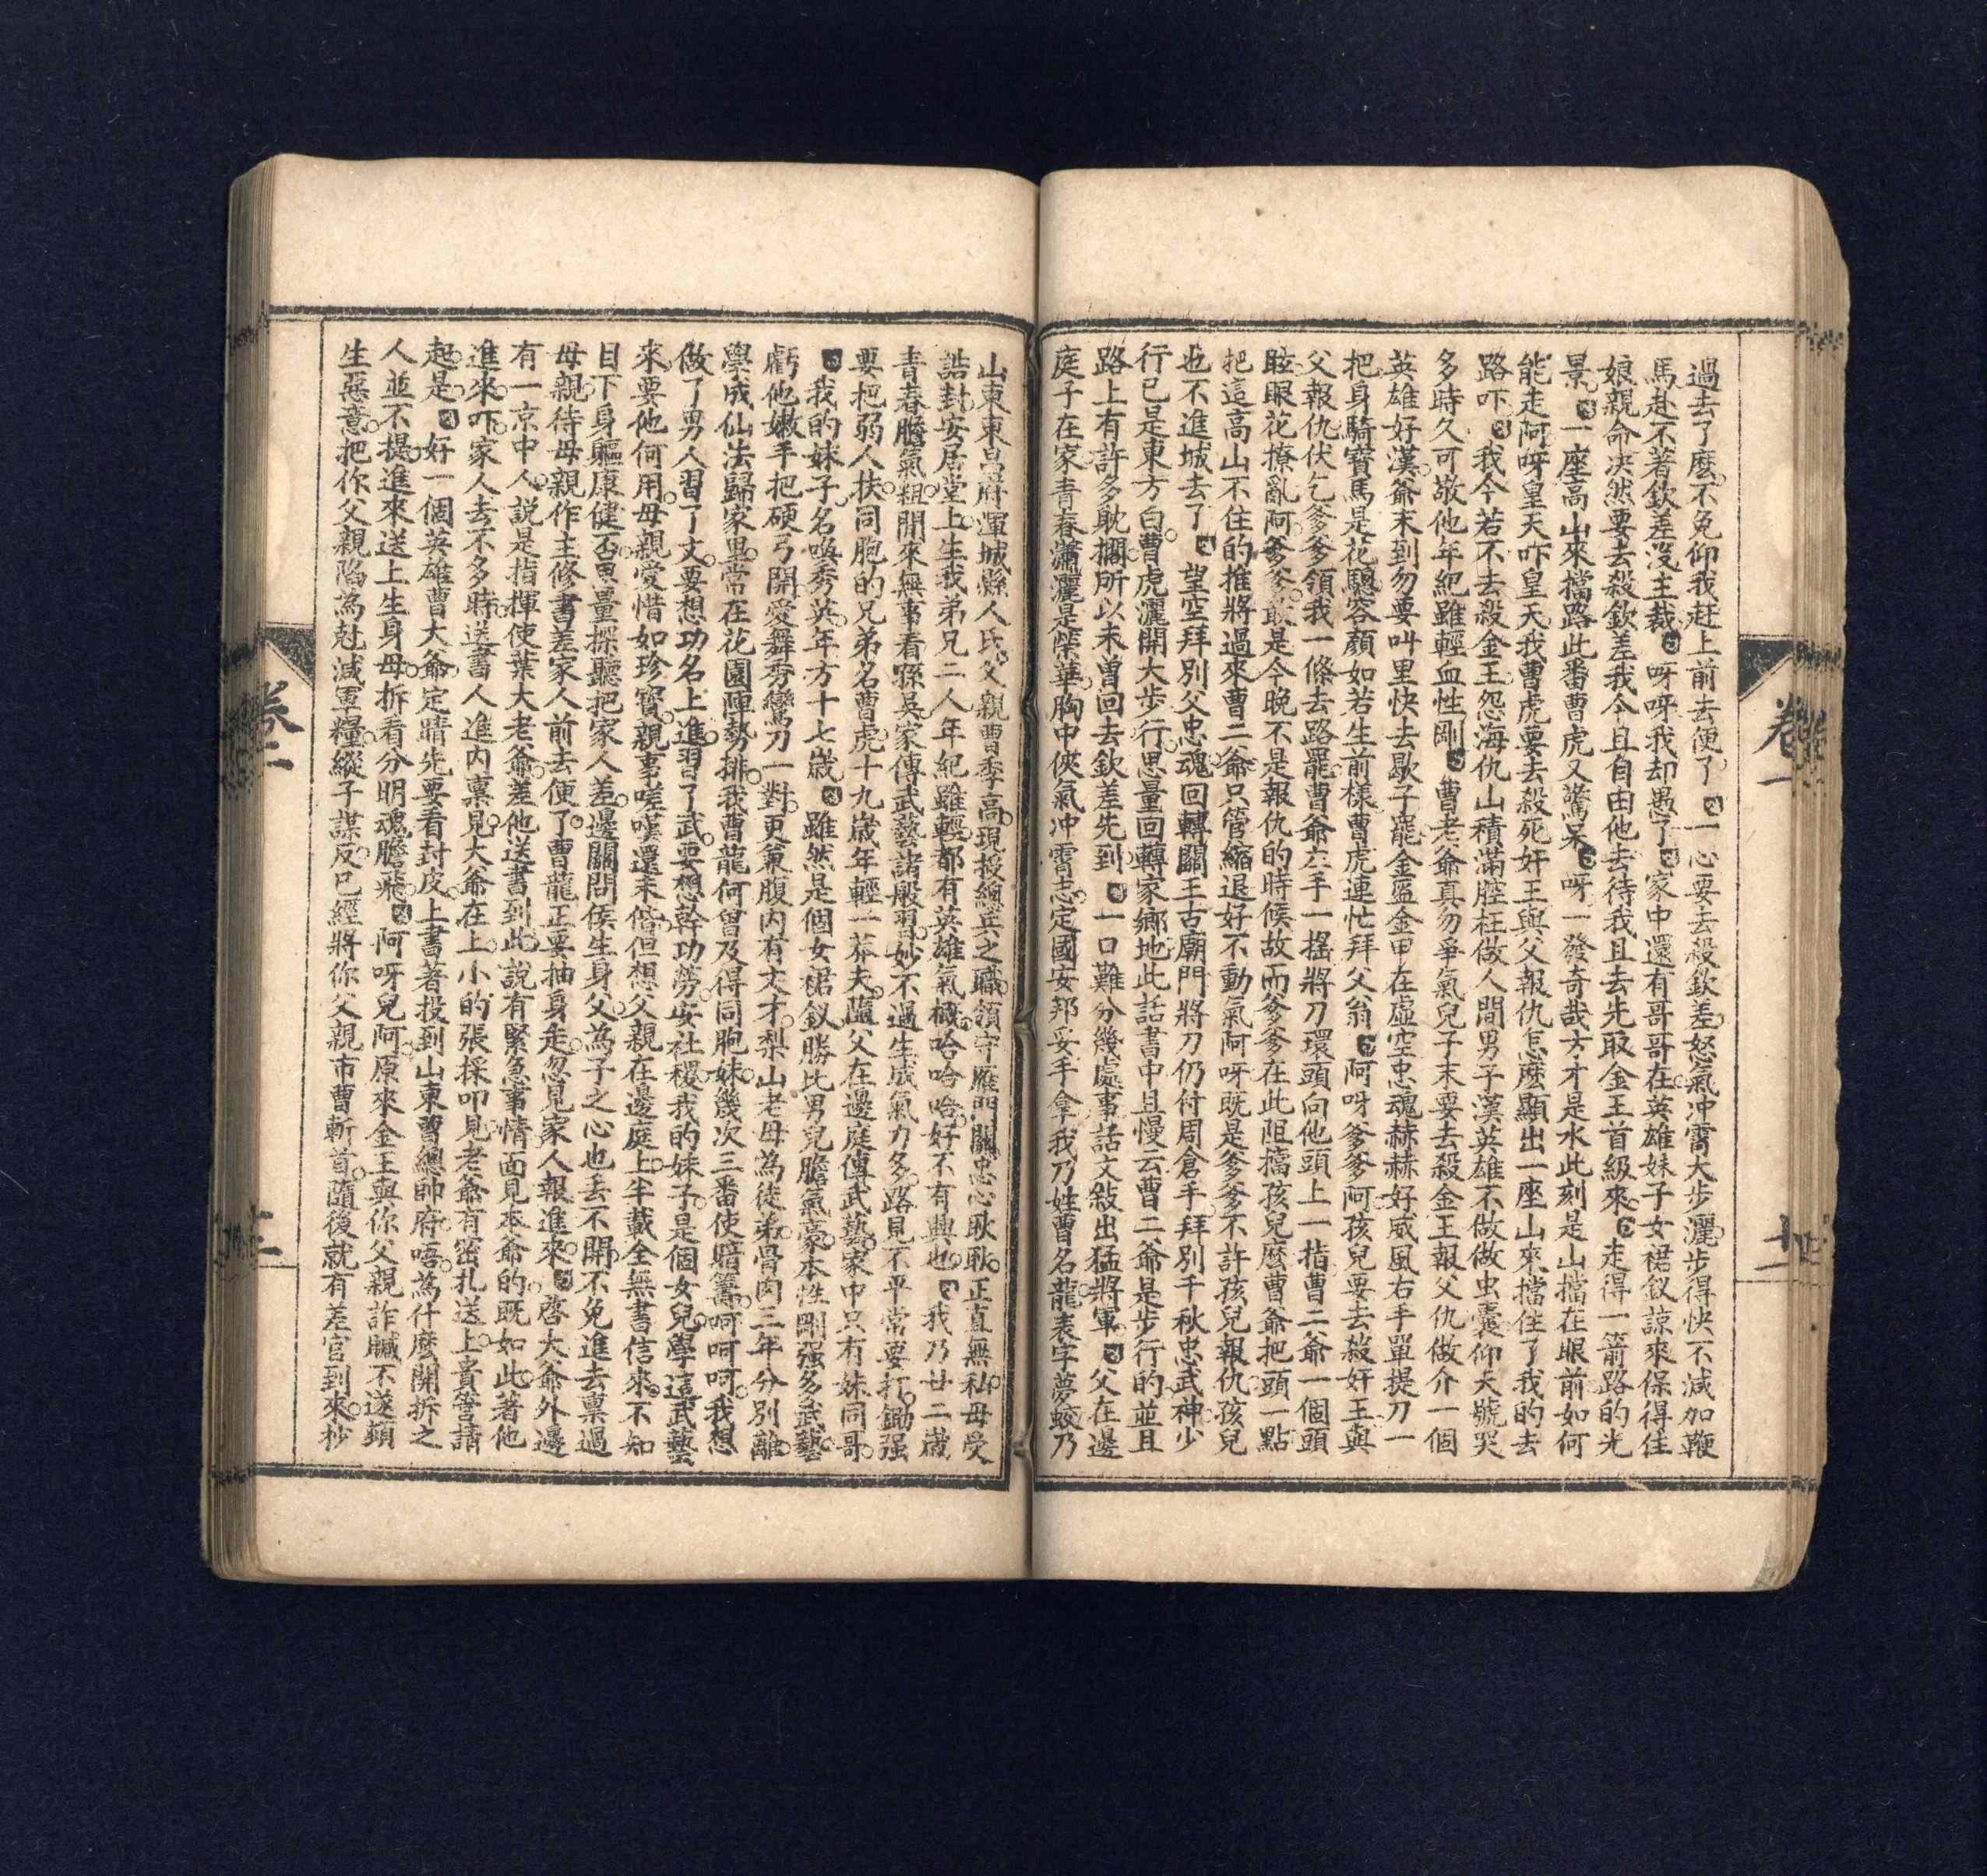 過去了麽不免仰我赶上前去便了一心要去殺欽差怒氣冲霄大步灑步得快不減加鞭
馬赴不著欽差沒主裁呀呀我却愚了家中還有哥哥在英雄妹子女裙釵諒來保得住
娘親命决然要去殺欽差我今且自由他去待我且去先取金王首級來走得一箭路的光
景一座高山來擋路此番曹虎又驚呆呀一發奇哉方才是水此刻是山擋在眼前如何
能走阿呀皇天吓皇天我曹虎要去殺死奸王與父報仇怎麽顯出一座山來擋住了我的去
路吓我今若不去殺金王怨海仇山積滿腔枉做人間男子漢英雄不做做虫囊仰天號哭
多時久可敬他年紀雖輕血性剛曹老爺真勿爭氣兒子末要去殺金王報父仇做介一個
英雄好漢爺末到勿要叫里快去歇子罷金盔金甲在虛空忠魂赫赫好威風右手單提刀一
把身騎寶馬是花驄容顏如若生前樣曹虎連忙拜父翁阿呀爹爹阿孩兒要去殺奸王與
父報仇伏乞爹爹領我一條去路罷曹爺左手一搖將刀環頭向他頭上一指曹二爺一個頭
眩眼花撩亂阿爹爹敢是今晚不是報仇的時候故而爹爹在此阻擋孩兒麽曹爺把頭一點
把這高山不住的推將過來曹二爺只管縮退好不動氣阿呀既是爹爹不許孩兒報仇孩兒
也不進城去了望空拜別父忠魂回轉關王古廟門將刀仍付周倉手拜別千秋忠武神少
行已是東方白曹虎灑開大步行思量回轉家鄉地此話書中且慢云曹二爺是步行的並且
路上有許多耽擱所以未曾回去欽差先到一口難分幾處事話文敍出猛將軍父在邊
庭子在家青春瀟灑是榮華胸中俠氣冲霄志定國安邦妥手拿我乃姓曹名龍表字夢蛟乃
卷一
山東東昌府渾城縣人氏父親曹季高現授總兵之職領守雁門關忠心耿耿正直無私母受
誥封安居堂上生我弟兄二人年紀雖輕都有英雄氣概哈哈哈好不有興也我乃廿二歲
青春膽氣粗閒來無事看孫吳家傳武藝諸般習妙不過生成氣力多路見不平常要打鋤强
要把弱人扶同胞的兄弟名曹虎十九歲年輕一莽夫隨父在邊庭傳武藝家中只有妹同哥
我的妹子名喚秀英年方十七歲雖然是個女裙釵勝比男兒膽氣豪本性剛强多武藝
虧他嫩手把硬弓開愛舞秀鸞刀一對更兼腹內有文才梨山老母為徒弟骨肉三年分別離
學成仙法歸家里常在花園陣勢排我曹龍何曾及得同胞妹幾次三番使暗籌呵呵呵我想
做了男人習了文要想功名上進習了武要想幹功勞安社稷我的妹子是個女兒學這武藝
來要他何用母親愛惜如珍寶親事嗟嘆還未偕但想父親在邊庭上半載全無書信來不知
目下身軀康健否思量探聽把家人差邊關問候生身父為子之心也丢不開不免進去禀過
母親待母親作主修書差家人前去便了曹龍正要抽身走忽見家人報進來啓大爺外邊
有一京中人說是指揮使葉大老爺差他送書到此說有緊急事情面見本爺的既如此著他
進來吓家人去不多時送書人進內禀見大爺在上小的張採叩見老爺有密札送上貴營請
起是好一個英雄曹大爺定睛先要看封皮上書著投到山東曹總帥府唔為什麽開拆之
人並不提進來送上生身母拆看分明魂膽飛阿呀兒阿原來金王與你父親詐贓不遂頓
生惡意把你父親陷為尅減軍糧縱子謀反已經將你父親市曹斬首隨後就有差官到來抄
卷二